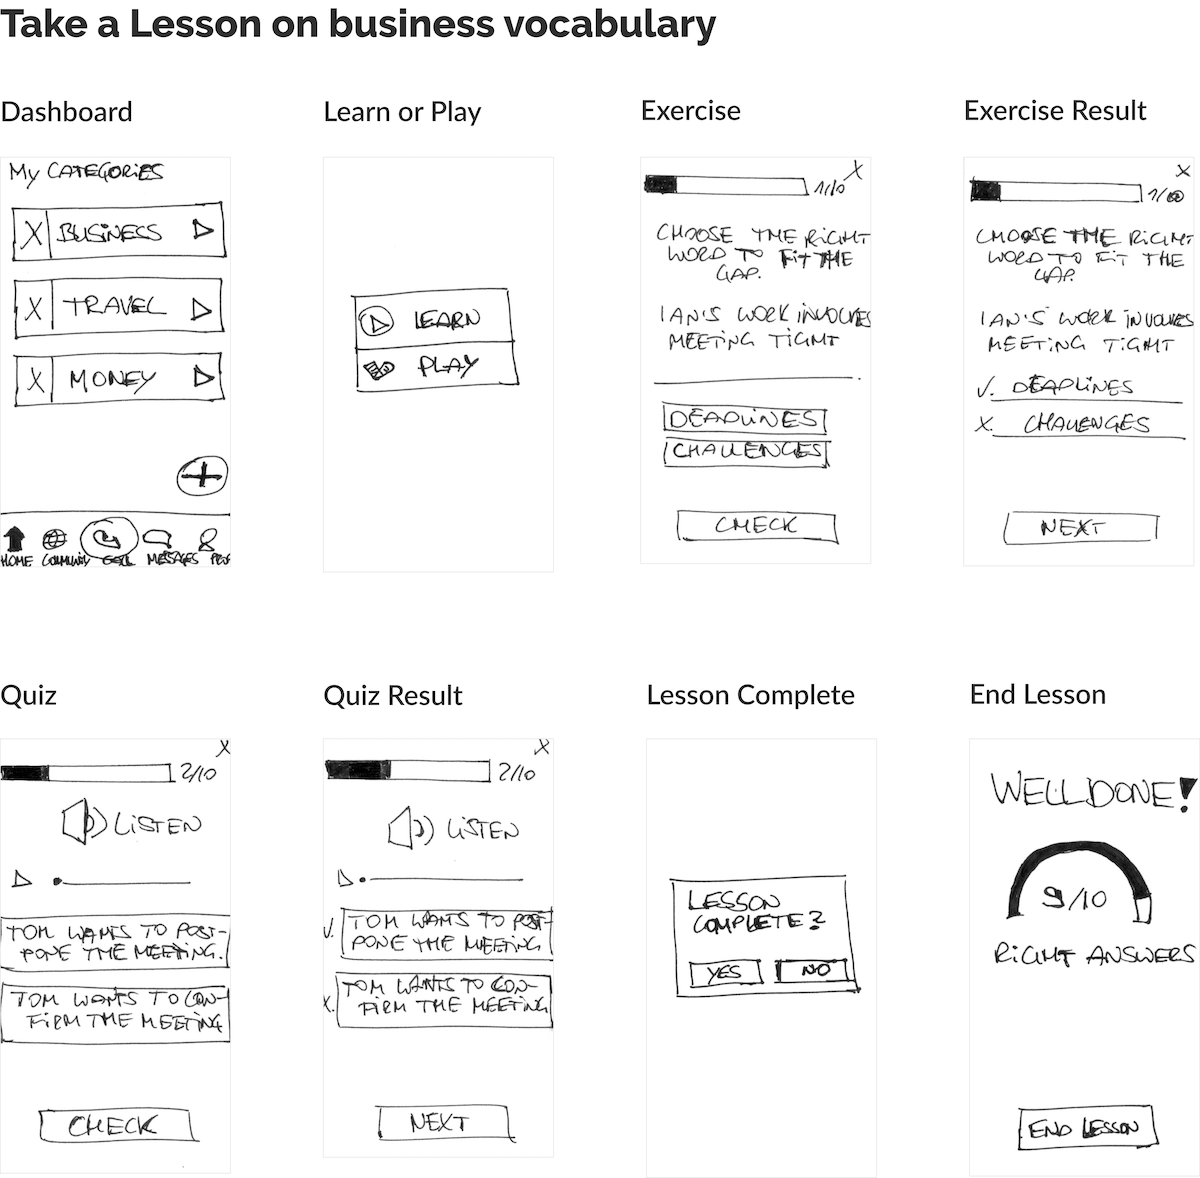 Take a Lesson on business vocabulary
Dashboard
My CATEGORIES
X BUSINESS
X TRAVEL
X MONEY
HOME COMMUNITY MESSAGES
Learn or Play
LEARN
PLAY
Exercise
X
1/10
CHOOSE THE RIGHT
WORD TO FIT THE
GAP.
IAN'S WORK INVOLVES
MEETING TIGHT
DEADLINES
CHALLENGES
CHECK
Exercise Result
X
1/10
CHOOSE THE RIGHT
WORD TO FIT THE
GAP.
IAN'S WORK INVOLVES
MEETING TIGHT
DEADLINES
X. CHALLENGES
NEXT
Quiz
X
2/10
LISTEN
TOM WANTS TO POST-
PONE THE MEETING.
TOM WANTS TO CON-
FIRM THE MEETING
CHECK
Quiz Result
X
2/10
LISTEN
TOM WANTS TO POST-
PONE THE MEETING
X. TOM WANTS TO CON-
FIRM THE MEETING
NEXT
Lesson Complete
LESSON
COMPLETE?
YES NO
End Lesson
WELL DONE!
9/10
RIGHT ANSWERS
END LESSON